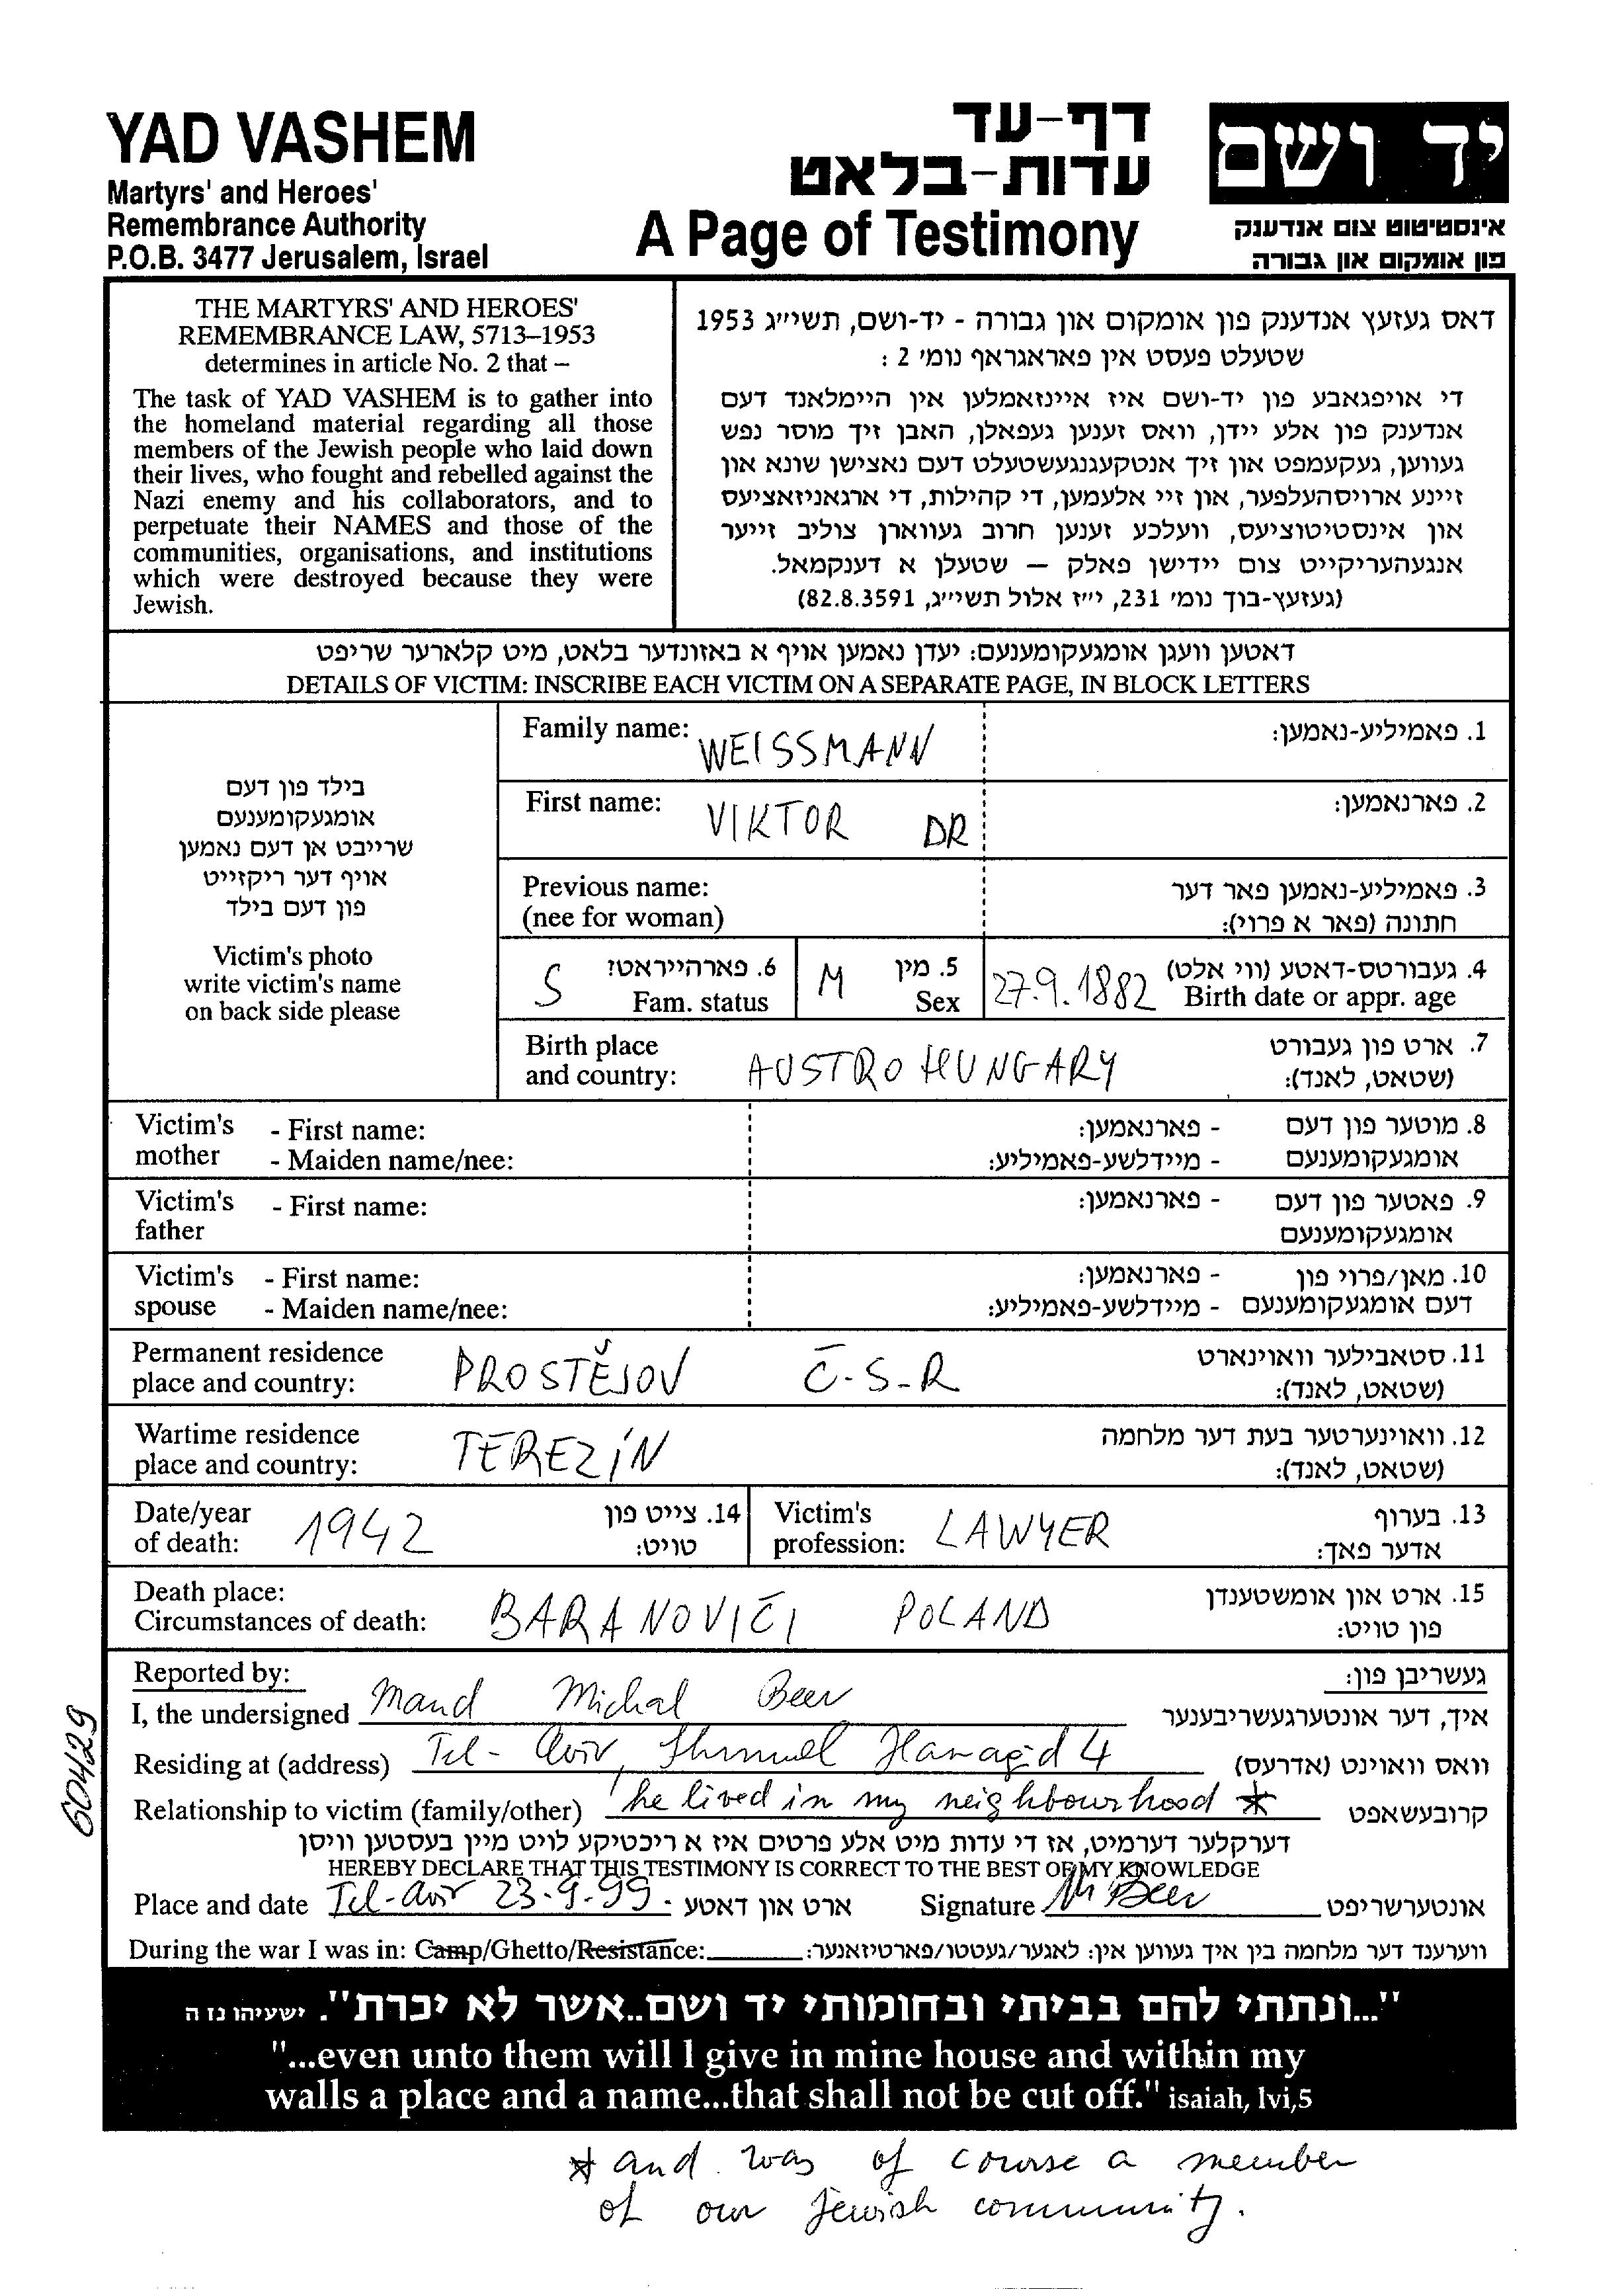 YAD VASHEM
Martyrs' and Heroes'
Remembrance Authority
P.O.B. 3477 Jerusalem, Israel
דף-עד
עדות-בלאט
A Page of Testimony
יד ושם
אינסטיטוט צום אנדענק
פון אומקום און גבורה
THE MARTYRS' AND HEROES'
REMEMBRANCE LAW, 5713–1953
determines in article No. 2 that –
The task of YAD VASHEM is to gather into
the homeland material regarding all those
members of the Jewish people who laid down
their lives, who fought and rebelled against the
Nazi enemy and his collaborators, and to
perpetuate their NAMES and those of the
communities, organisations, and institutions
which were destroyed because they were
Jewish.
דאס געזעץ אנדענק פון אומקום און גבורה - יד-ושם, תשי״ג 1953
שטעלט פעסט אין פאראגראף נומ׳ 2 :
די אויפגאבע פון יד-ושם איז איינזאמלען אין היימלאנד דעם
אנדענק פון אלע יידן, וואס זענען געפאלן, האבן זיך מוסר נפש
געווען, געקעמפט און זיך אנטקעגנגעשטעלט דעם נאצישן שונא און
זיינע ארויסהעלפער, און זיי אלעמען, די קהילות, די ארגאניזאציעס
און אינסטיטוציעס, וועלכע זענען חרוב געווארן צוליב זייער
אנגעהעריקייט צום יידישן פאלק — שטעלן א דענקמאל.
(געזעץ-בוך נומ׳ 231, י״ז אלול תשי״ג, 82.8.3591)
דאטען וועגן אומגעקומענעם: יעדן נאמען אויף א באזונדער בלאט, מיט קלארער שריפט
DETAILS OF VICTIM: INSCRIBE EACH VICTIM ON A SEPARATE PAGE, IN BLOCK LETTERS
בילד פון דעם
אומגעקומענעם
שרייבט אן דעם נאמען
אויף דער ריקזייט
פון דעם בילד
Victim's photo
write victim's name
on back side please
Family name: WEISSMANN 1. פאמיליע-נאמען:
First name: VIKTOR DR 2. פארנאמען:
Previous name: 3. פאמיליע-נאמען פאר דער
(nee for woman) חתונה (פאר א פרוי):
S 6. פארהייראטן? M 5. מין 27.9.1882 4. געבורטס-דאטע (ווי אלט)
Fam. status Sex Birth date or appr. age
Birth place 7. ארט פון געבורט
and country: AUSTRO HUNGARY (שטאט, לאנד):
Victim's - First name: - פארנאמען: 8. מוטער פון דעם
mother - Maiden name/nee: - מיידלשע-פאמיליע: אומגעקומענעם
Victim's - First name: - פארנאמען: 9. פאטער פון דעם
father אומגעקומענעם
Victim's - First name: - פארנאמען: 10. מאן/פרוי פון
spouse - Maiden name/nee: - מיידלשע-פאמיליע: דעם אומגעקומענעם
Permanent residence 11. סטאבילער וווינארט
place and country: PROSTĚJOV Č-S-R (שטאט, לאנד):
Wartime residence 12. וווינערטער בעת דער מלחמה
place and country: TEREZÍN (שטאט, לאנד):
Date/year 1942 14. צייט פון Victim's LAWYER 13. בערוף
of death: טויט: profession: אדער פאך:
Death place: 15. ארט און אומשטענדן
Circumstances of death: BARANOVIČI POLAND פון טויט:
Reported by: געשריבן פון:
I, the undersigned Mand Michal Beer איך, דער אונטערגעשריבענער
Residing at (address) Tel-Aviv, Shmuel Hanagid 4 וואס וווינט (אדרעס)
Relationship to victim (family/other) he lived in my neighbourhood * קרובעשאפט
דערקלער דערמיט, אז די עדות מיט אלע פרטים איז א ריכטיקע לויט מיין בעסטען וויסן
HEREBY DECLARE THAT THIS TESTIMONY IS CORRECT TO THE BEST OF MY KNOWLEDGE
Place and date Tel-Aviv 23-9-99- ארט און דאטע Signature M Beer אונטערשריפט
During the war I was in: Camp/Ghetto/Resistance: ווערענד דער מלחמה בין איך געווען אין: לאגער/געטטו/פארטיזאנער:
60429
"...ונתתי להם בביתי ובחומותי יד ושם..אשר לא יכרת". ישעיהו נז ה
"...even unto them will I give in mine house and within my
walls a place and a name...that shall not be cut off." isaiah, lvi,5
* and was of course a member
of our Jewish community.